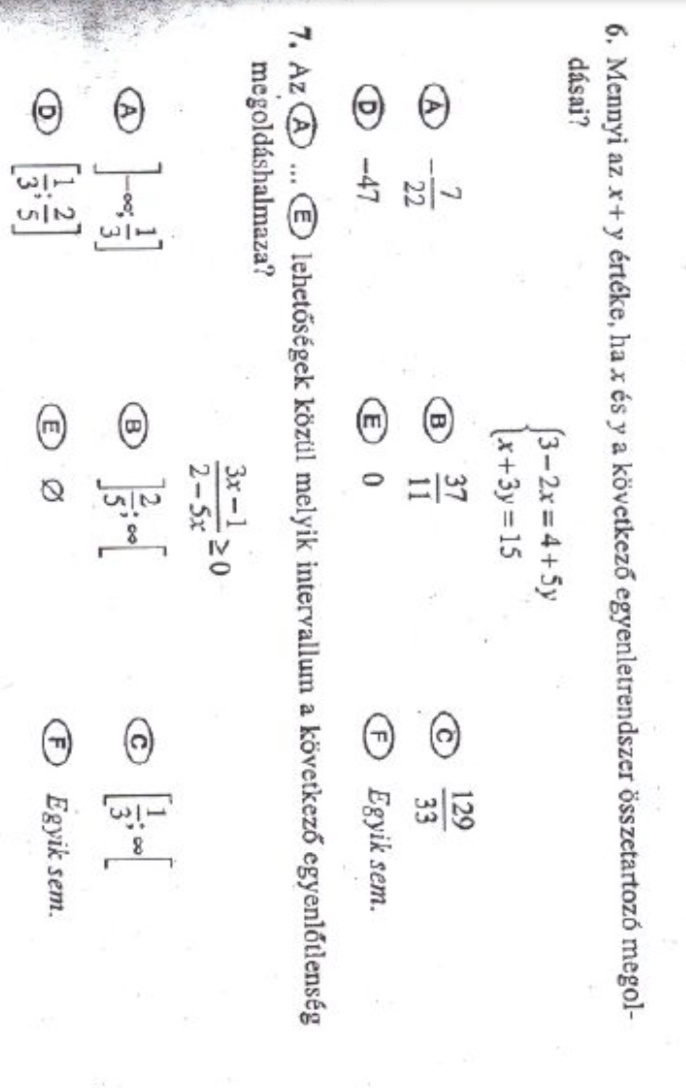 6. Mennyi az x + y értéke, ha x és y a következő egyenletrendszer összetartozó megol-
dásai?
{3 − 2x = 4 + 5y
{x + 3y = 15
(A) −7/22 (B) 37/11 (C) 129/33
(D) −47 (E) 0 (F) Egyik sem.
7. Az (A) ... (E) lehetőségek közül melyik intervallum a következő egyenlőtlenség
megoldáshalmaza?
(3x − 1)/(2 − 5x) ≥ 0
(A) ]−∞; 1/3] (B) ]2/5; ∞[ (C) [1/3; ∞[
(D) [1/3; 2/5] (E) Ø (F) Egyik sem.